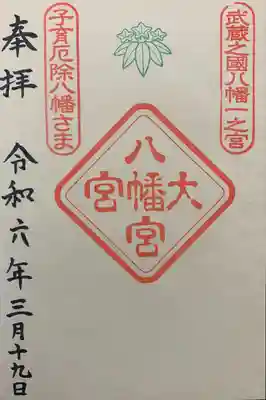 武蔵之國八幡一之宮
大宮
八幡宮
子育厄除八幡さま
奉拝
令和六年三月十九日